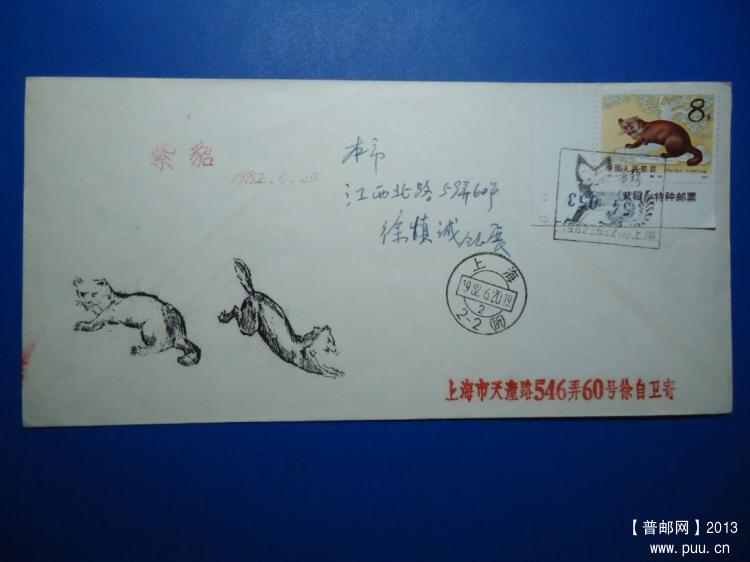 紫貂
1982.6.20
8分
中国人民邮政
紫貂 特种邮票
53
本市
江西北路59弄60号
徐慎诚
上海
1982.6.20.19
2
2-2
上海市天潼路546弄60号徐自卫寄
【普邮网】2013
www.puu.cn